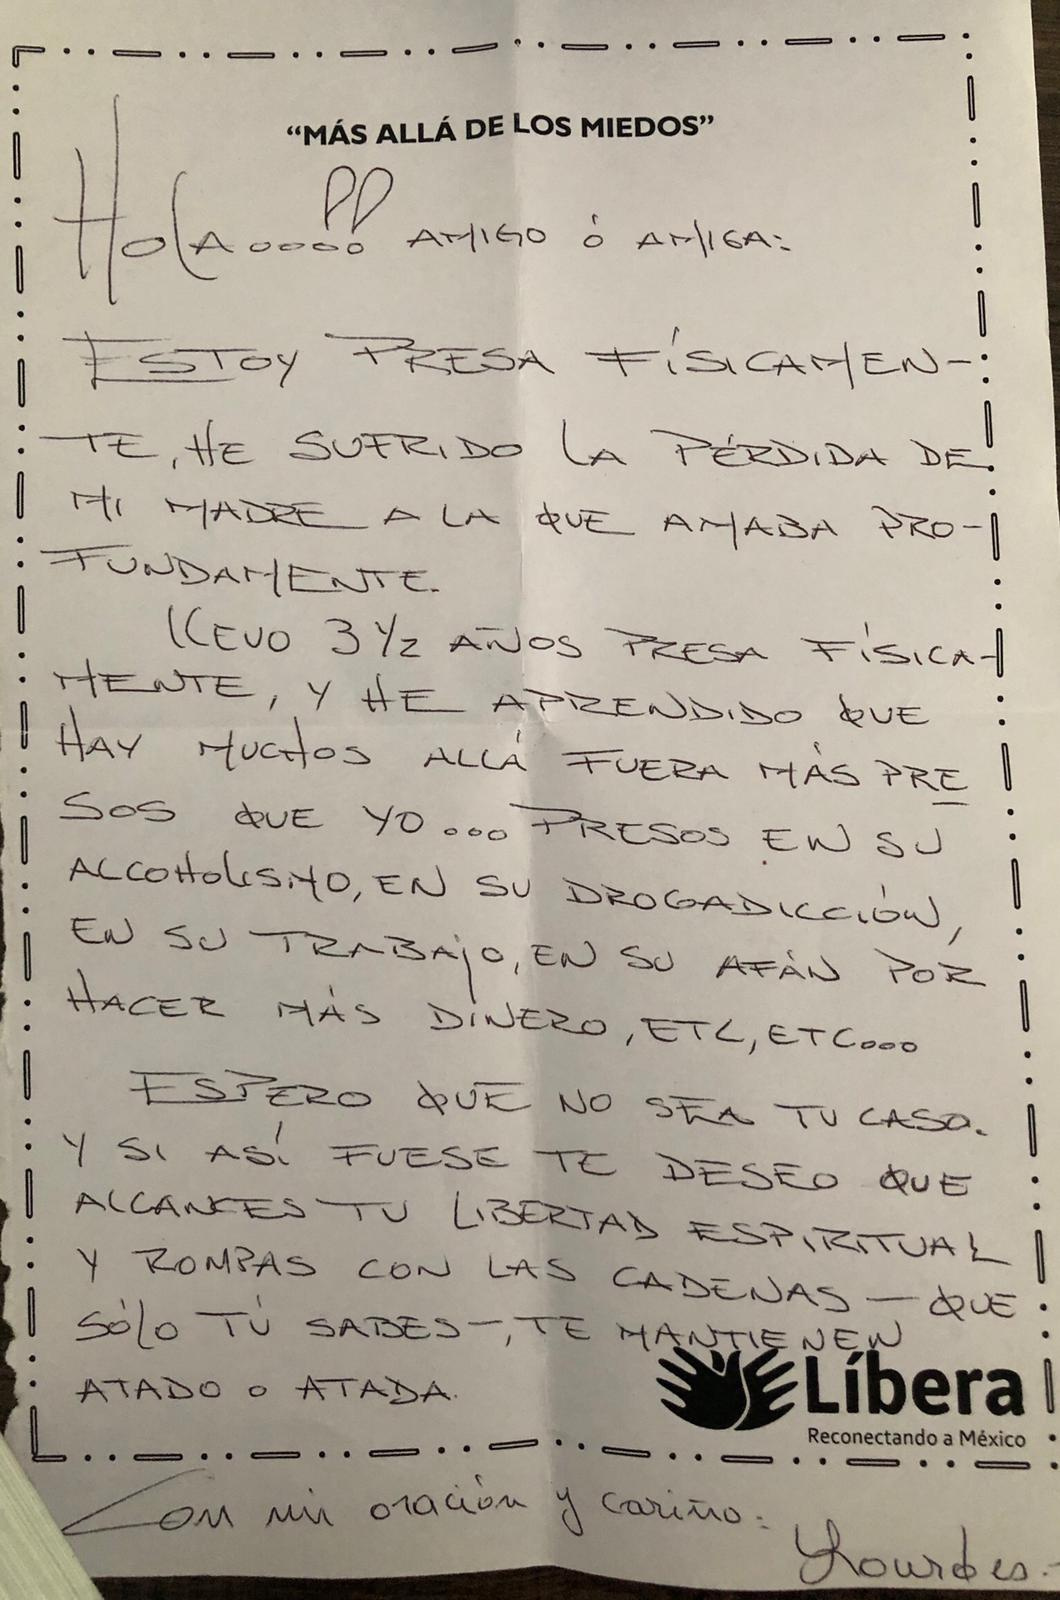 “MÁS ALLÁ DE LOS MIEDOS”
Holaoooo!! AMIGO ó AMIGA:
ESTOY PRESA FÍSICAMEN-
TE, HE SUFRIDO LA PÉRDIDA DE
MI MADRE A LA QUE AMABA PRO-
FUNDAMENTE.
LLEVO 3 1/2 AÑOS PRESA FÍSICA-
MENTE, Y HE APRENDIDO QUE
HAY MUCHOS ALLÁ FUERA MÁS PRE
SOS QUE YO... PRESOS EN SU
ALCOHOLISMO, EN SU DROGADICCIÓN,
EN SU TRABAJO, EN SU AFÁN POR
HACER MÁS DINERO, ETC, ETC...
ESPERO QUE NO SEA TU CASO.
Y SI ASÍ FUESE TE DESEO QUE
ALCANCES TU LIBERTAD ESPIRITUAL
Y ROMPAS CON LAS CADENAS — QUE
SÓLO TÚ SABES —, TE MANTIENEN
ATADO o ATADA.
Líbera
Reconectando a México
Con mi oración y cariño:
Lourdes.-